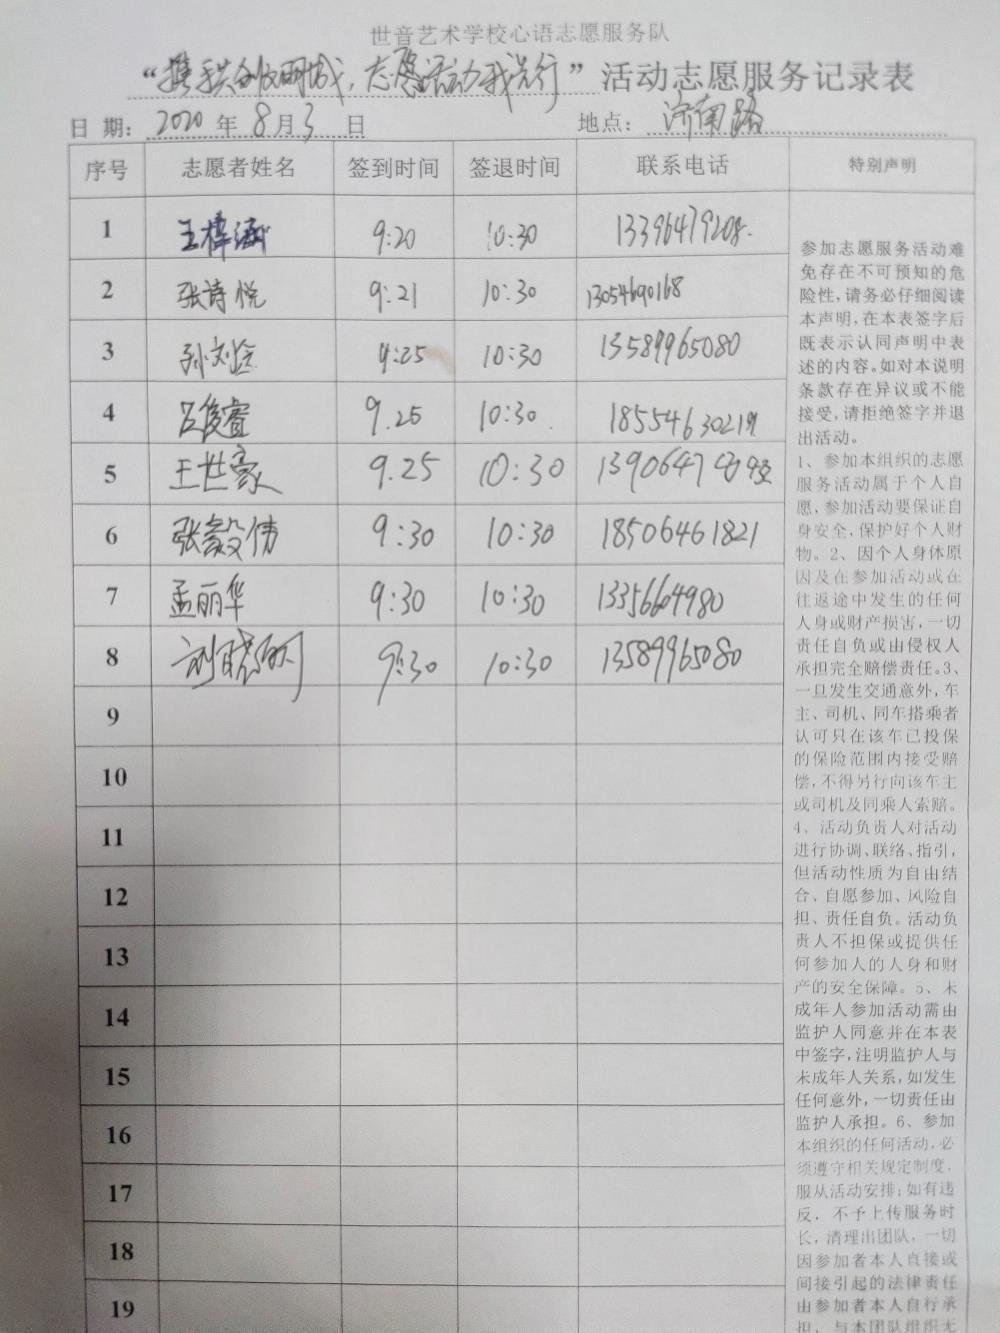 世音艺术学校心语志愿服务队
“携手共创文明城，志愿活动我先行”活动志愿服务记录表
日 期： 2020 年 8 月 3 日 地点： 济南路
序号 志愿者姓名 签到时间 签退时间 联系电话 特别声明
1 王梓涵 9:20 10:30 13396479208
2 张诗悦 9:21 10:30 13054690168
3 9:25 10:30 13589965080
4 吕俊睿 9.25 10:30
5 王世豪 9.25 10:30
6 张毅伟 9:30 10:30 18506461821
7 孟丽华 9:30 10:30 13356604980
8 9:30 10:30 13589965080
9
10
11
12
13
14
15
16
17
18
19
参加志愿服务活动难
免存在不可预知的危
险性，请务必仔细阅读
本声明，在本表签字后
既表示认同声明中表
述的内容。如对本说明
条款存在异议或不能
接受，请拒绝签字并退
出活动。
1、参加本组织的志愿
服务活动属于个人自
愿，参加活动要保证自
身安全，保护好个人财
物。2、因个人身体原
因及在参加活动或在
往返途中发生的任何
人身或财产损害，一切
责任自负或由侵权人
承担完全赔偿责任。3、
一旦发生交通意外，车
主、司机、同车搭乘者
认可只在该车已投保
的保险范围内接受赔
偿，不得另行向该车主
或司机及同乘人索赔。
4、活动负责人对活动
进行协调、联络、指引，
但活动性质为自由结
合、自愿参加、风险自
担、责任自负。活动负
责人不担保或提供任
何参加人的人身和财
产的安全保障。5、未
成年人参加活动需由
监护人同意并在本表
中签字，注明监护人与
未成年人关系，如发生
任何意外，一切责任由
监护人承担。6、参加
本组织的任何活动，必
须遵守相关规定制度，
服从活动安排；如有违
反，不予上传服务时
长，清理出团队，一切
因参加者本人直接或
间接引起的法律责任
由参加者本人自行承
担，与本团队组织无